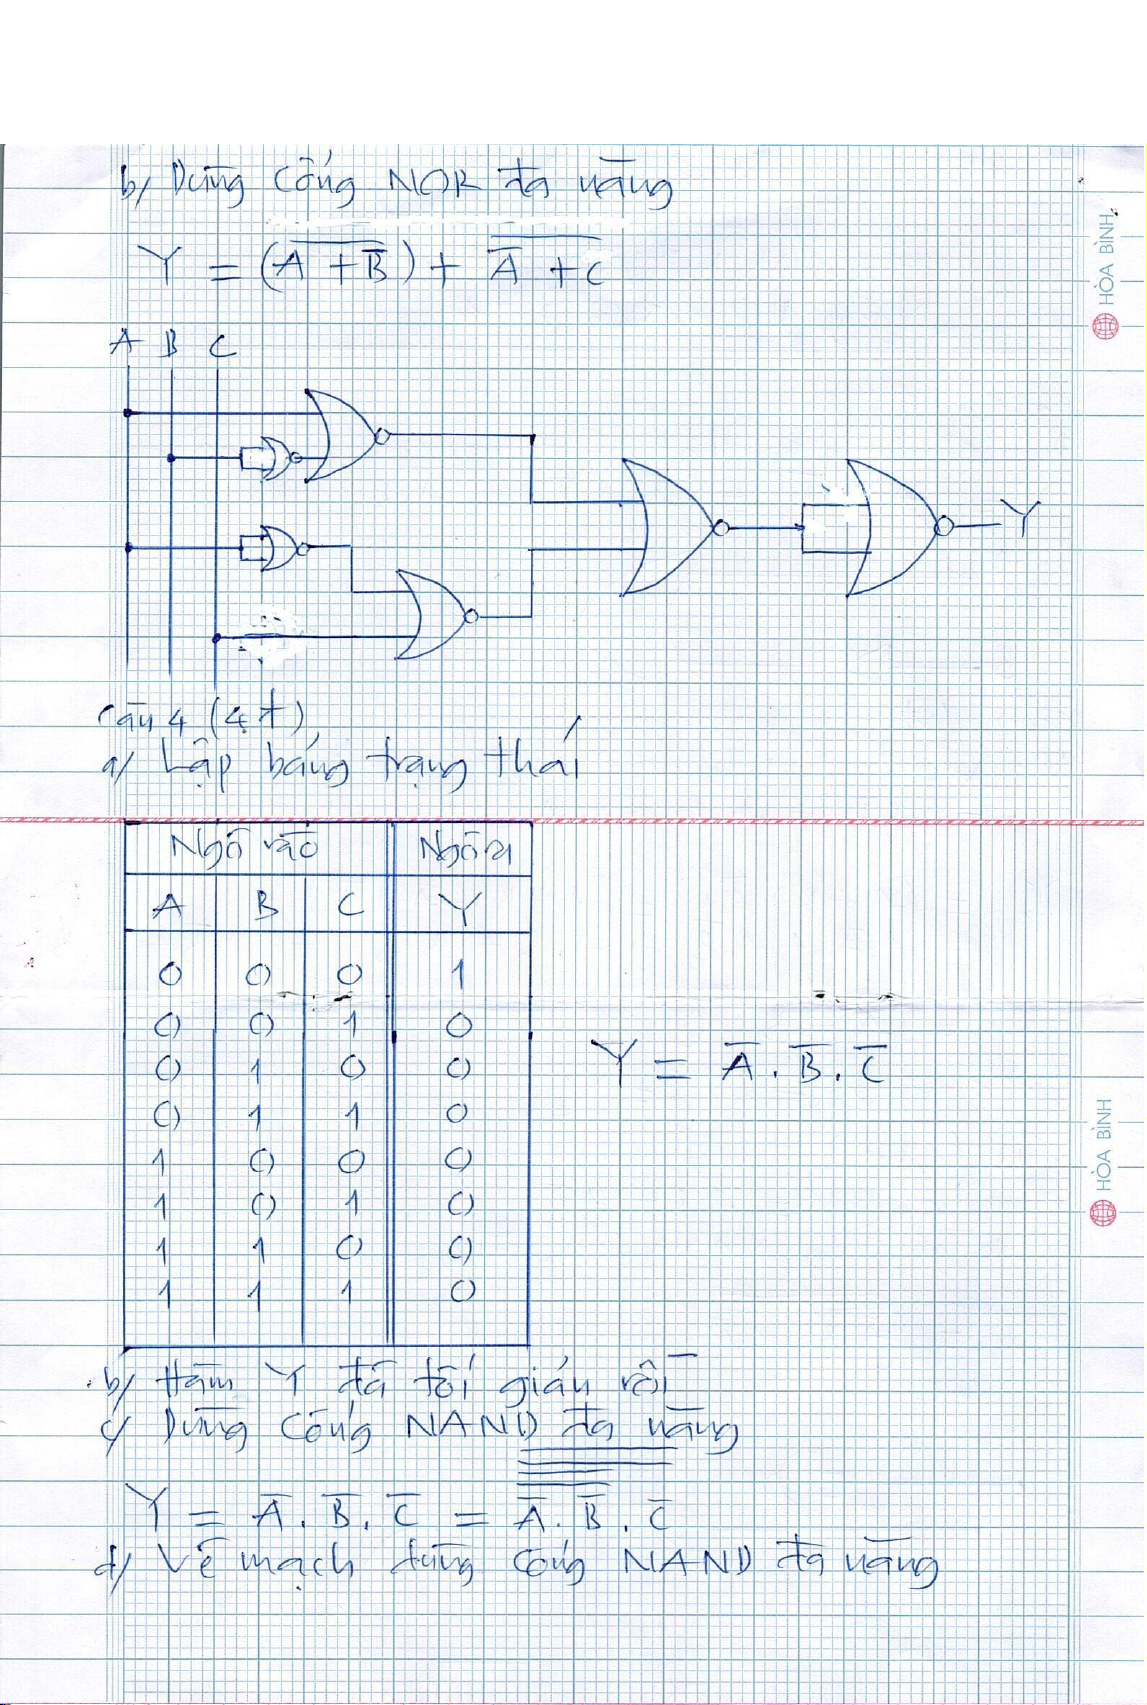 b/ Dùng Cổng NOR đa năng
Y = (\overline{A + \overline{B}}) + \overline{\overline{A} + C}
HÒA BÌNH
A B C
Y
Câu 4 (4đ)
a/ Lập bảng trạng thái
Ngõ vào Ngõ ra
A B C Y
0 0 0 1
0 0 1 0
0 1 0 0
0 1 1 0
1 0 0 0
1 0 1 0
1 1 0 0
1 1 1 0
Y = \overline{A} . \overline{B} . \overline{C}
HÒA BÌNH
b/ Hàm Y đã tối giản rồi
c/ Dùng Cổng NAND đa năng
Y = \overline{A} . \overline{B} . \overline{C} = \overline{\overline{\overline{\overline{\overline{A} . \overline{B}}} . \overline{C}}}
d/ Vẽ mạch dùng cổng NAND đa năng